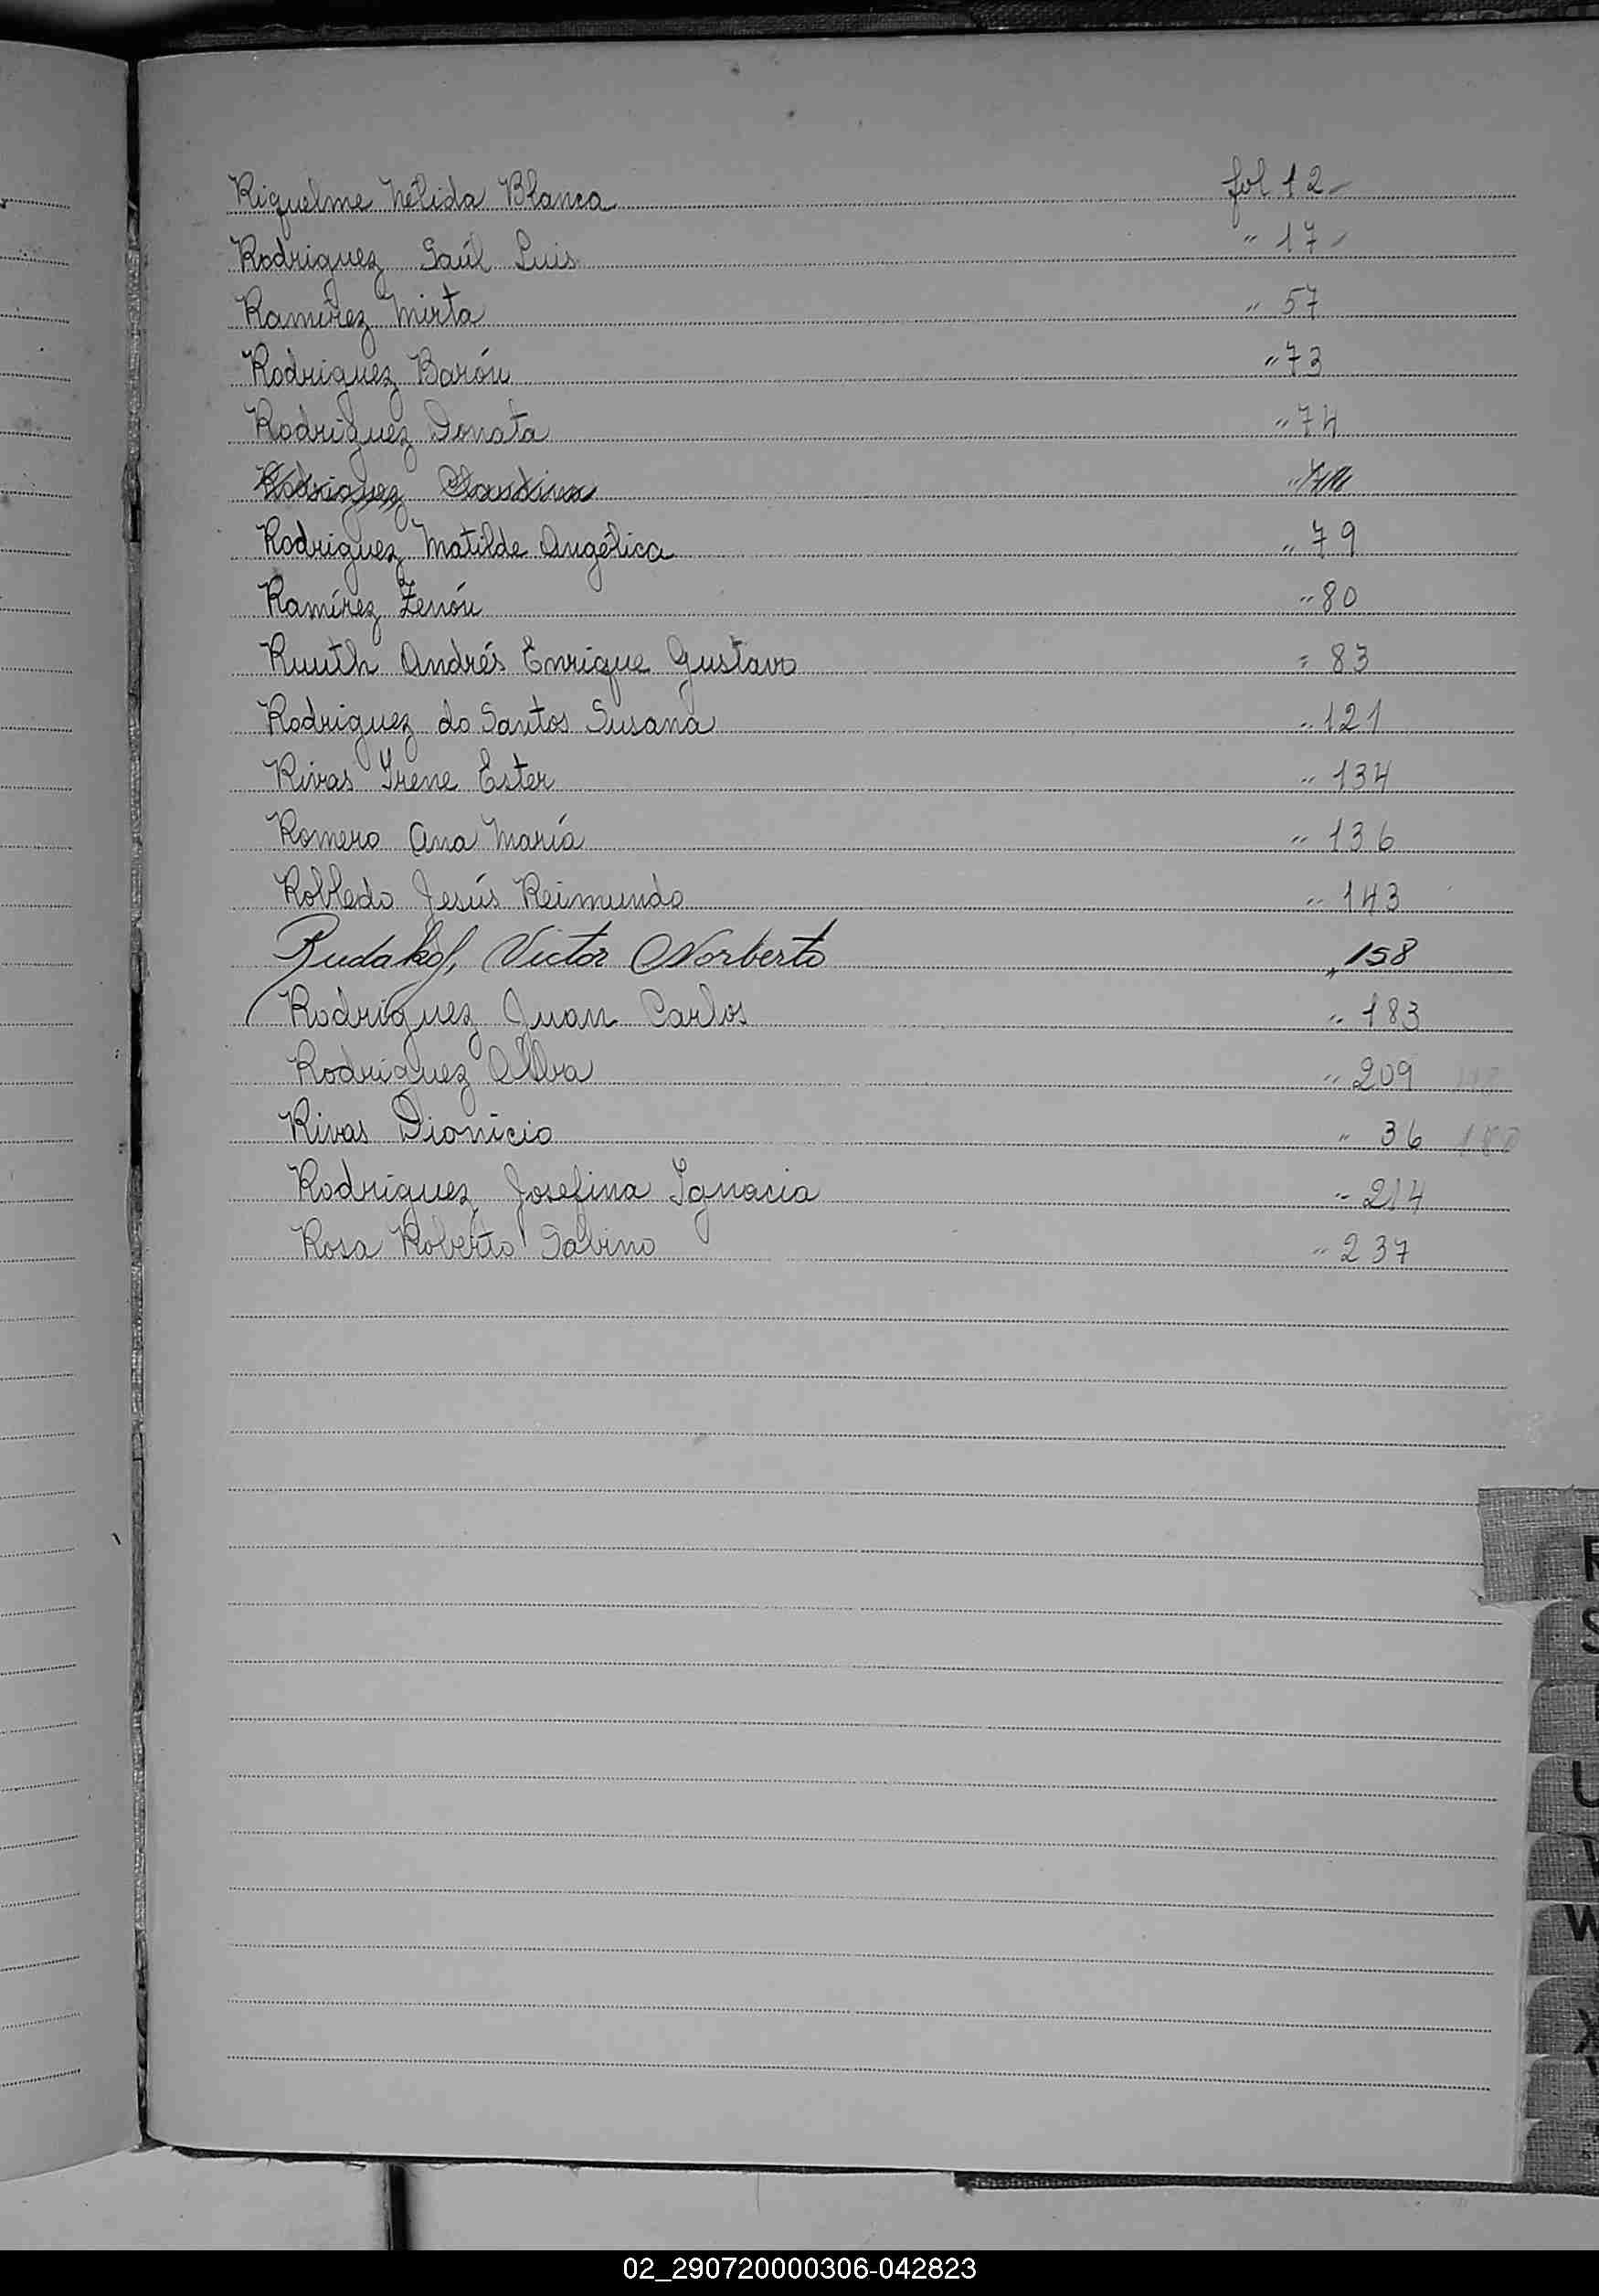 Riquelme Nélida Blanca fol 12-
Rodriguez Saúl Luis " 17-
Ramírez Mirta " 57
Rodriguez Barón " 73
Rodriguez Donata " 74
Rodriguez Claudina "
Rodriguez Matilde Angélica " 79
Ramírez Zenón " 80
Ruuth Andrés Enrique Gustavo " 83
Rodriguez do Santos Susana " 121
Rivas Irene Ester " 134
Romero Ana María " 136
Robledo Jesús Reimundo " 143
Rudakof, Victor Norberto " 158
Rodriguez Juan Carlos " 183
Rodriguez Alba " 209
Rivas Dionicio " 36
Rodriguez Josefina Ignacia " 214
Rosa Roberto Sabino " 237
R
S
U
V
W
X
02_290720000306-042823